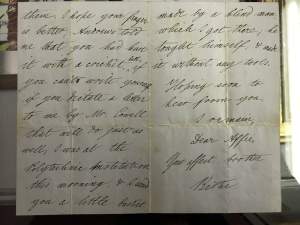 them, I hope your finger
is better, Andrews told
me that you had hurt
it with a crochet
you can't write yourself
if you dictate a letter
to me by Mr. Lowell
that will do just as
well, I was at the
Polytechnic Institution
this morning, & I send
you a little basket
made by a blind man
which I got there, he
taught himself, & made
it without any tools.
Hoping soon to
hear from you
I remain,
Dear Affie,
Your affect. brother
Bertie